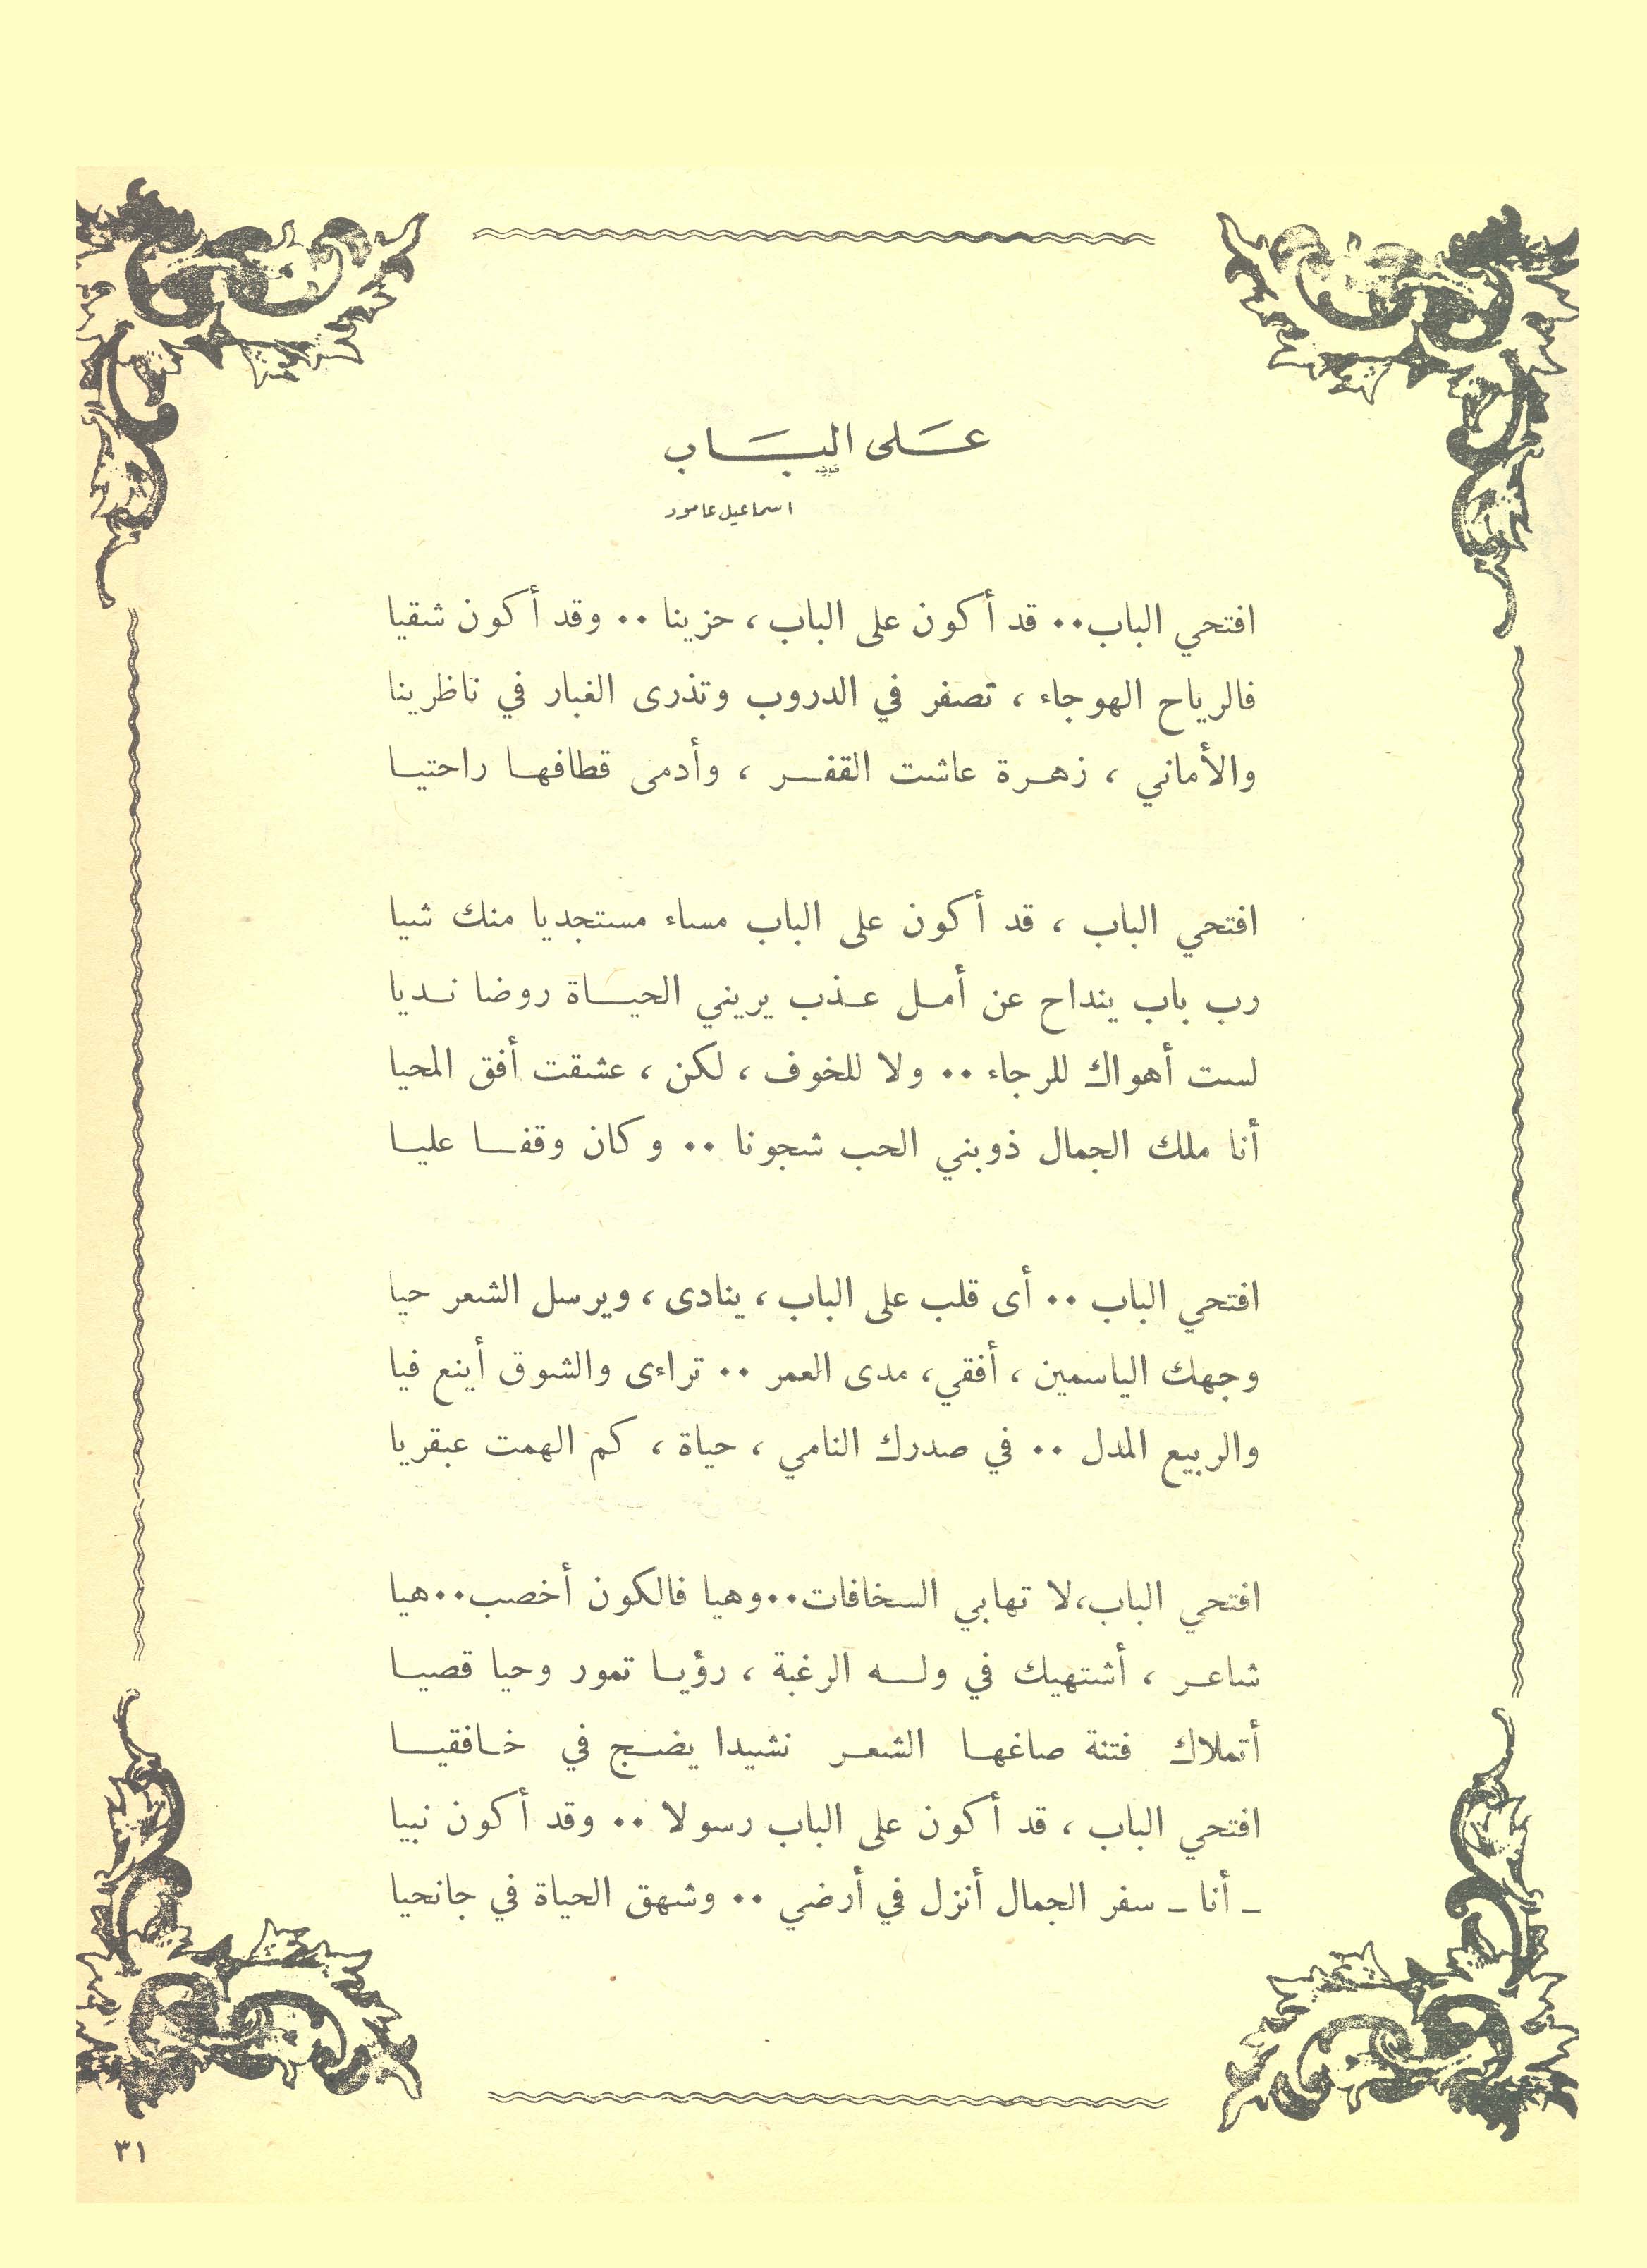 على الباب
اسماعيل عامود
افتحي الباب.. قد أكون على الباب ، حزينا .. وقد أكون شقيا
فالرياح الهوجاء ، تصفر في الدروب وتذرى الغبار في ناظرينا
والأماني ، زهرة عاشت القفر ، وأدمى قطافها راحتيا
افتحي الباب ، قد أكون على الباب مساء مستجديا منك شيا
رب باب ينداح عن أمل عذب يريني الحياة روضا نديا
لست أهواك للرجاء .. ولا للخوف ، لكن ، عشقت أفق المحيا
أنا ملك الجمال ذوبني الحب شجونا .. وكان وقفا عليا
افتحي الباب .. أى قلب على الباب ، ينادى ، ويرسل الشعر حيا
وجهك الياسمين ، أفقي ، مدى العمر .. تراءى والشوق أينع فيا
والربيع المدل .. في صدرك النامي ، حياة ، كم الهمت عبقريا
افتحي الباب، لا تهابي السخافات..وهيا فالكون أخصب..هيا
شاعر ، أشتهيك في وله الرغبة ، رؤيا تمور وحيا قصيا
أتملاك فتنة صاغها الشعر نشيدا يضج في خافقيا
افتحي الباب ، قد أكون على الباب رسولا .. وقد أكون نبيا
ـ أنا ـ سفر الجمال أنزل في أرضي .. وشهق الحياة في جانحيا
٣١